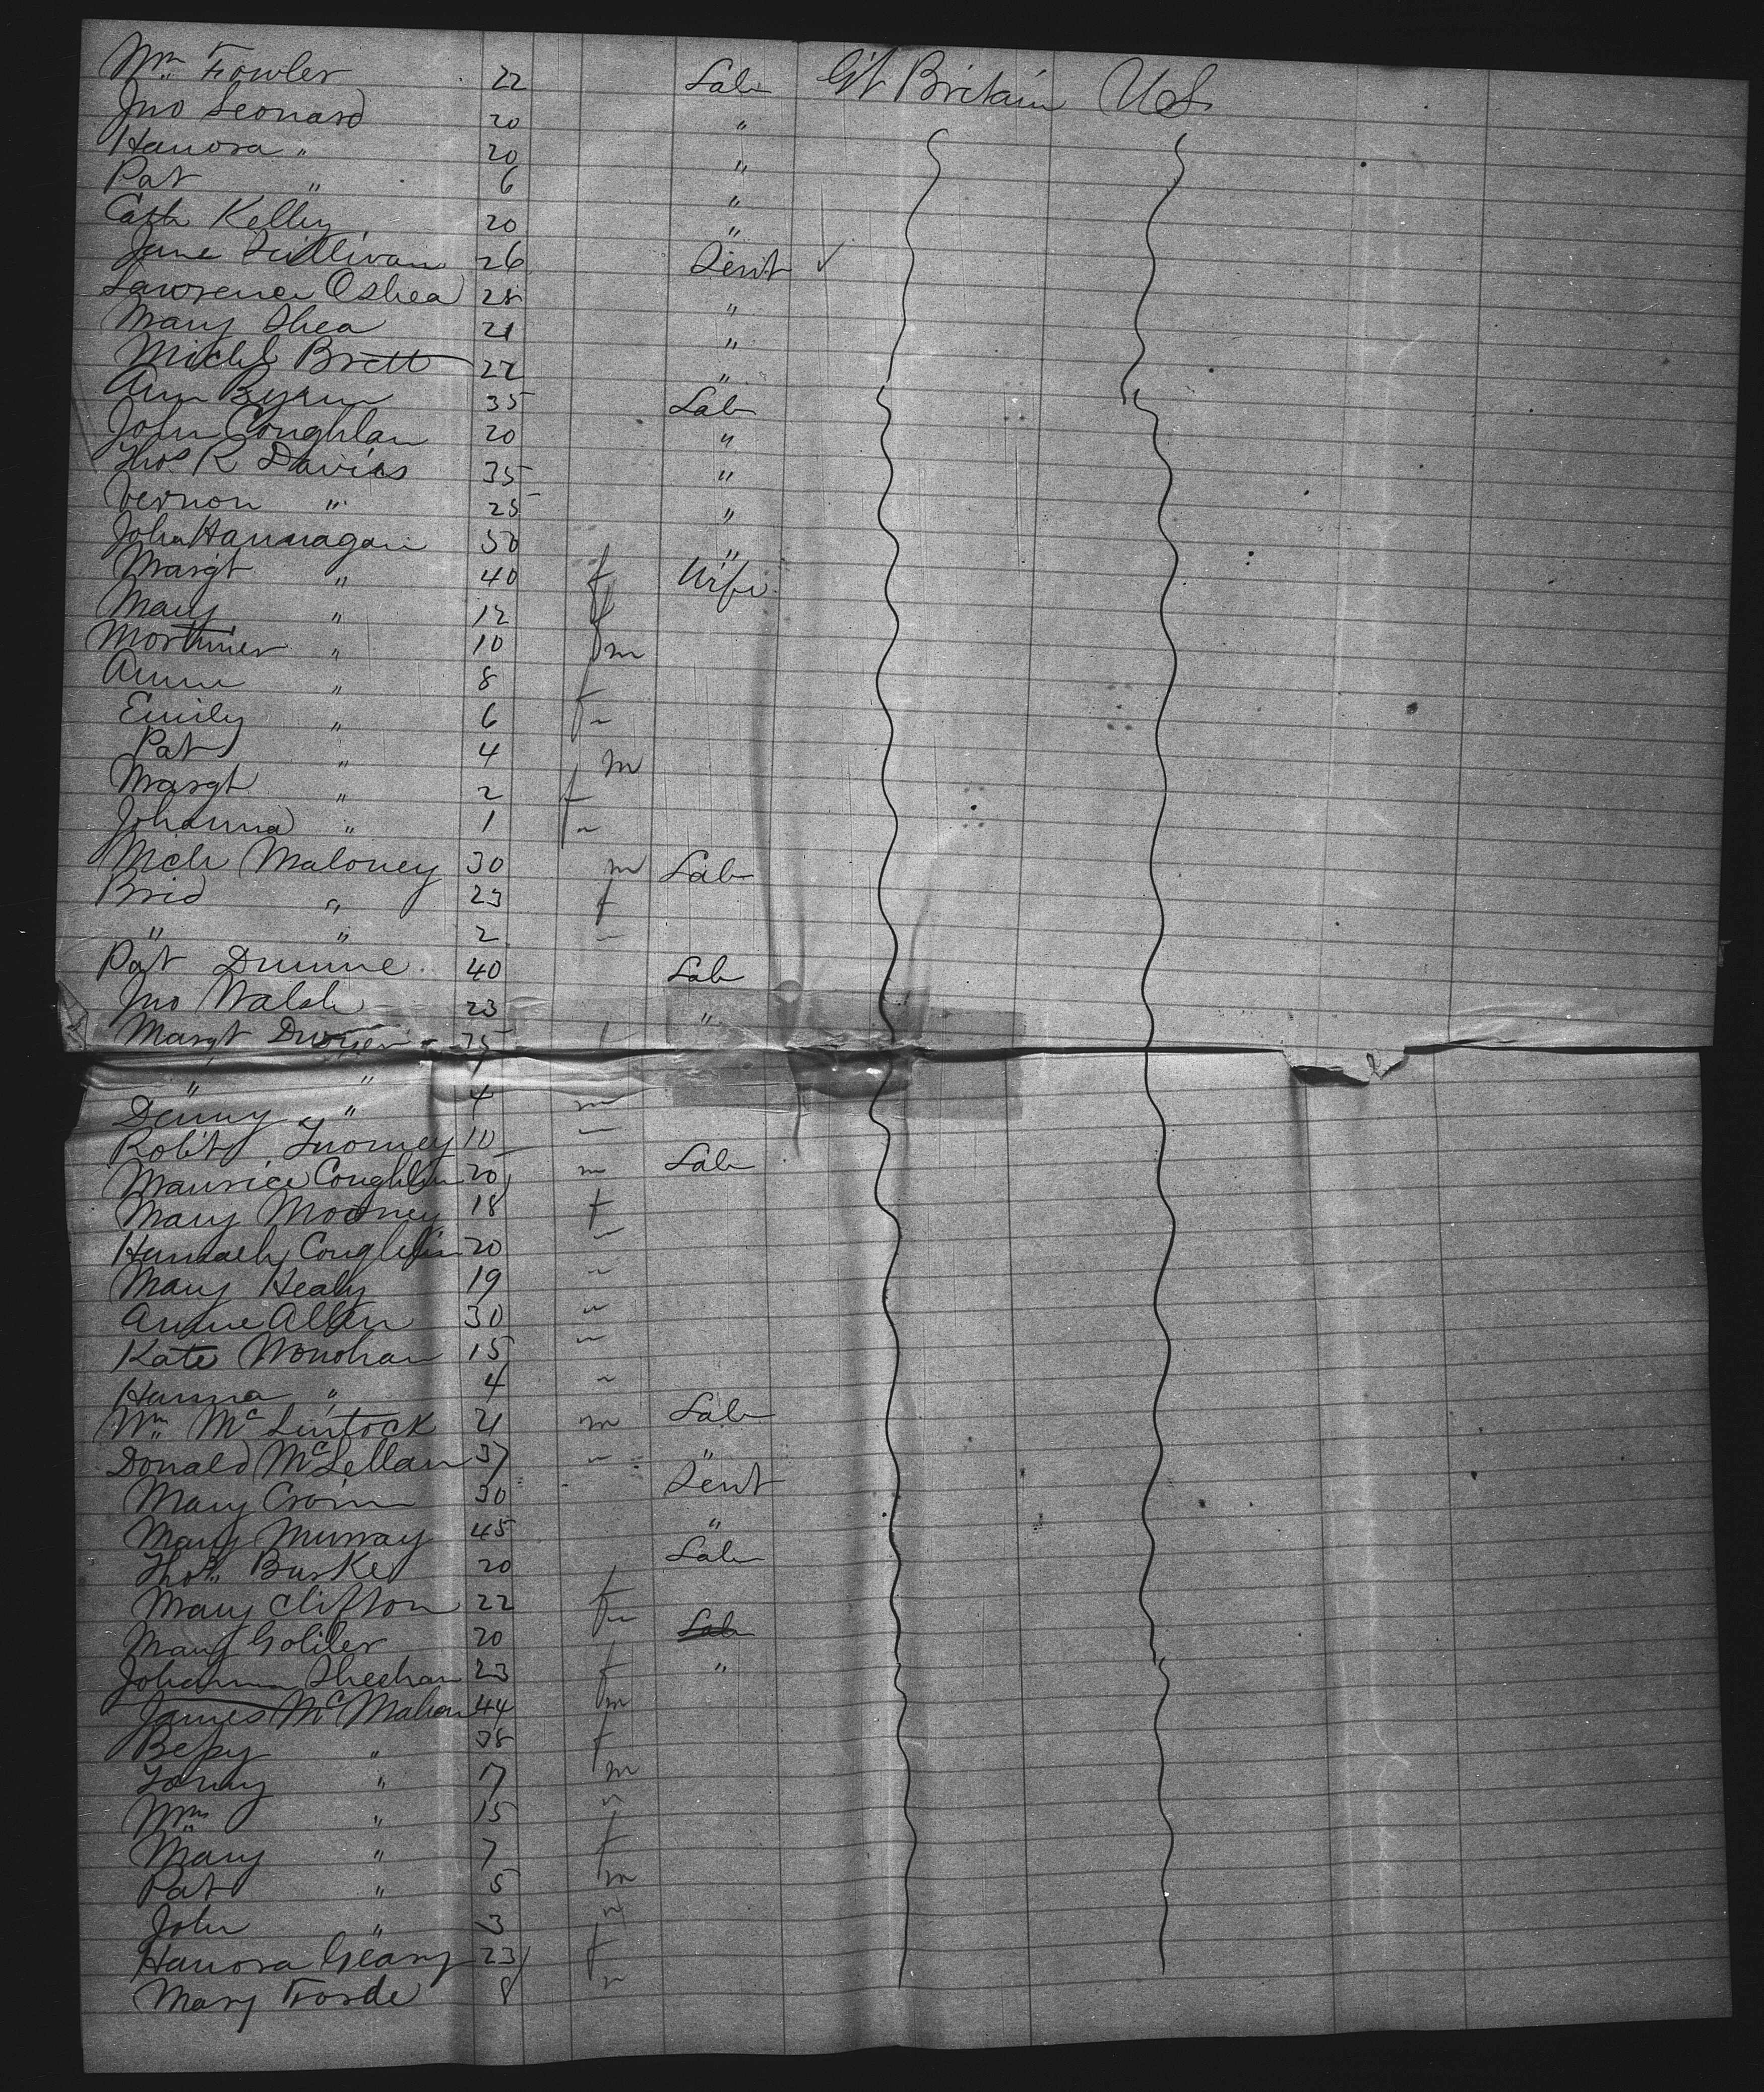 Wm Fowler 22 Lab Gt Britain U S
Jno Leonard 20 "
Hanora " 20 "
Pat " 6 "
Cath Kelly 20 "
Jane Sullivan 26 Servt ✓
Lawrence Oshea 28 "
Mary Shea 21 "
Michl Brett 22 "
Ann Byrne 35 Lab
John Coughlan 20 "
Thos R Davies 35 "
Vernon " 25 "
John Hannagan 50 "
Margt " 40 f Wife
Mary " 12 f
Mortimer " 10 m
Annie " 8 f
Emily " 6 "
Pat " 4 m
Margt " 2 f
Johanna " 1 "
Mich Maloney 30 m Lab
Brid " 23 f
" " 2 "
Pat Dunne 40 Lab
Jno Walsh 23 "
Margt Dwyer 35
" "
Denny " 4 m
Robt Twomey 10 "
Maurice Coughlin 20 m Lab
Mary Mooney 18 f
Hannah Coughlin 20 "
Mary Healy 19 "
Annie Allan 30 "
Kate Monohan 15 "
Hanna " 4 "
Wm McLintock 21 m Lab
Donald McLellan 37 " "
Mary Cronin 30 Servt
Mary Murray 45 "
Thos Burke 20 Lab
Mary Clifton 22 f
Mary 20 " Lab
Johanna Sheehan 23 f "
James McMahon 44 m
Bessy " 38 f
Tommy " 17 m
Wm " 15 "
Mary " 7 f
Pat " 5 m
John " 3 "
Hanora Geary 23 f
Mary Forde 8 "